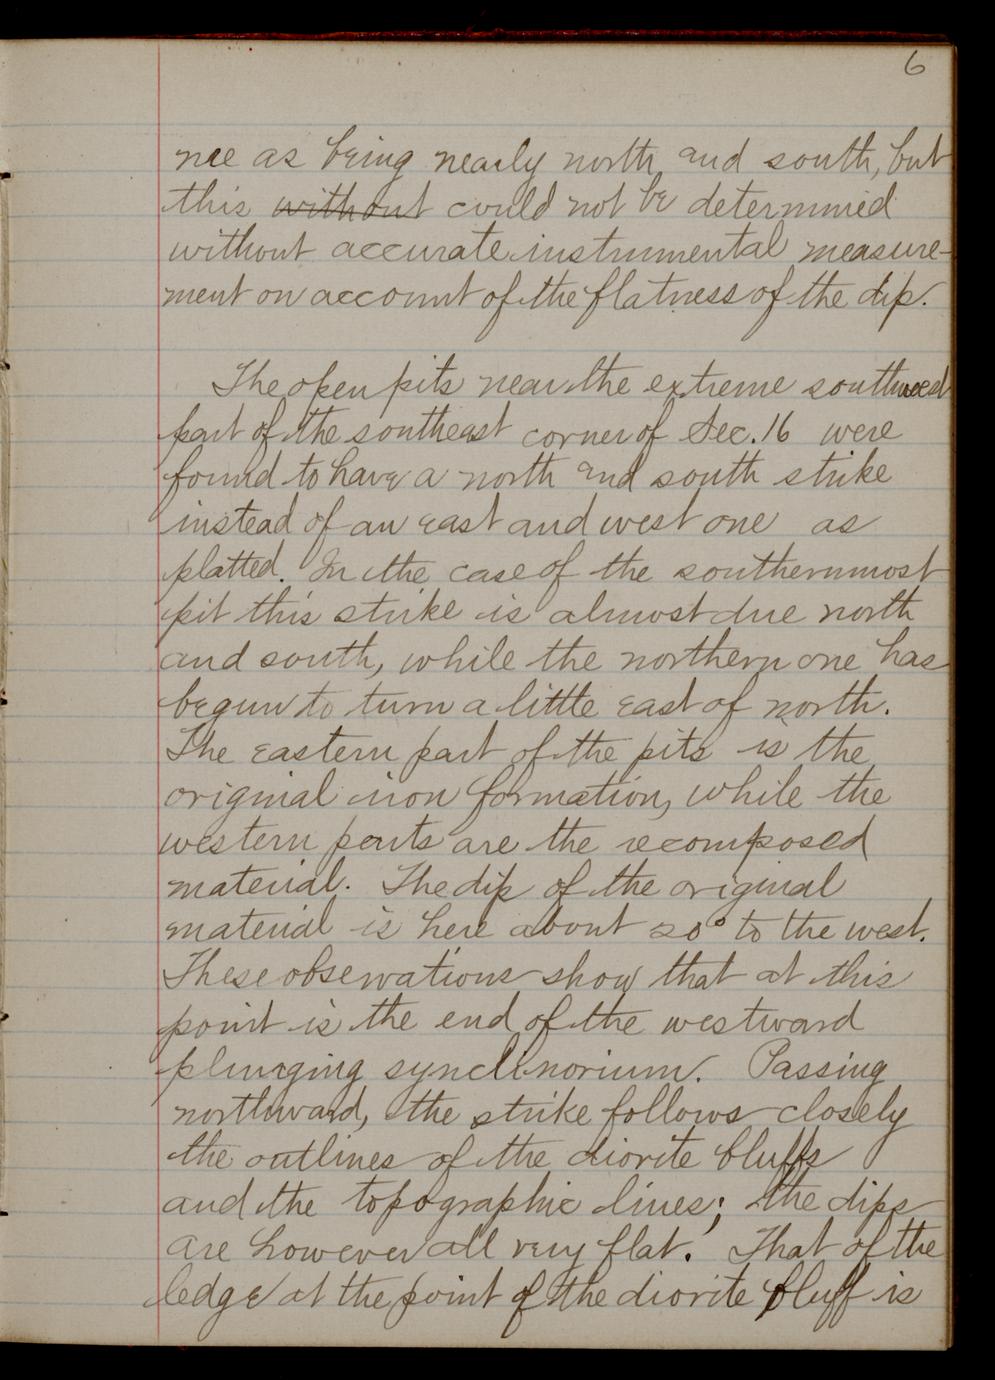 6
nee as being nearly north and south, but
this without could not be determined
without accurate instrumental measure-
ment on account of the flatness of the dip.
The open pits near the extreme southwest
part of the southeast corner of Sec. 16 were
found to have a north and south strike
instead of an east and west one as
platted. In the case of the southernmost
pit this strike is almost due north
and south, while the northern one has
begun to turn a little east of north.
The eastern part of the pits is the
original iron formation, while the
western parts are the recomposed
material. The dip of the original
material is here about 20° to the west.
These observations show that at this
point is the end of the westward
plunging synclinorium. Passing
northward, the strike follows closely
the outlines of the diorite bluffs
and the topographic lines; the dips
are however all very flat. That of the
ledge at the point of the diorite bluff is